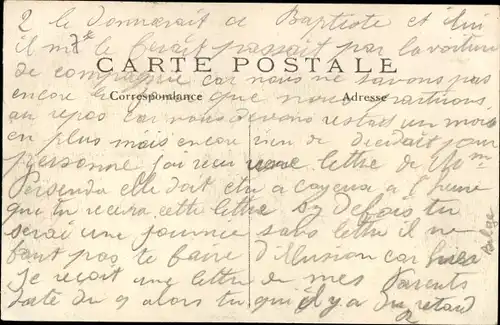 2 le donnerait a Baptiste et lui
il me le ferait passait par la voiture
de compagnie car nous ne savons pas
CARTE POSTALE
encore le jour que nous partirons
Correspondance Adresse
au repos car nous devons rester un mois
en plus mais encore rien de décidait pour
personne j'ai reçu une lettre de Mme
elle doit etre a cayeux a l'heure
que tu recevra cette lettre si des fois tu
serai une journée sans lettre il ne
faut pas te faire d'illusion car hier
je reçoit une lettre de mes Parents
daté du 9 alors tu il y a du retard